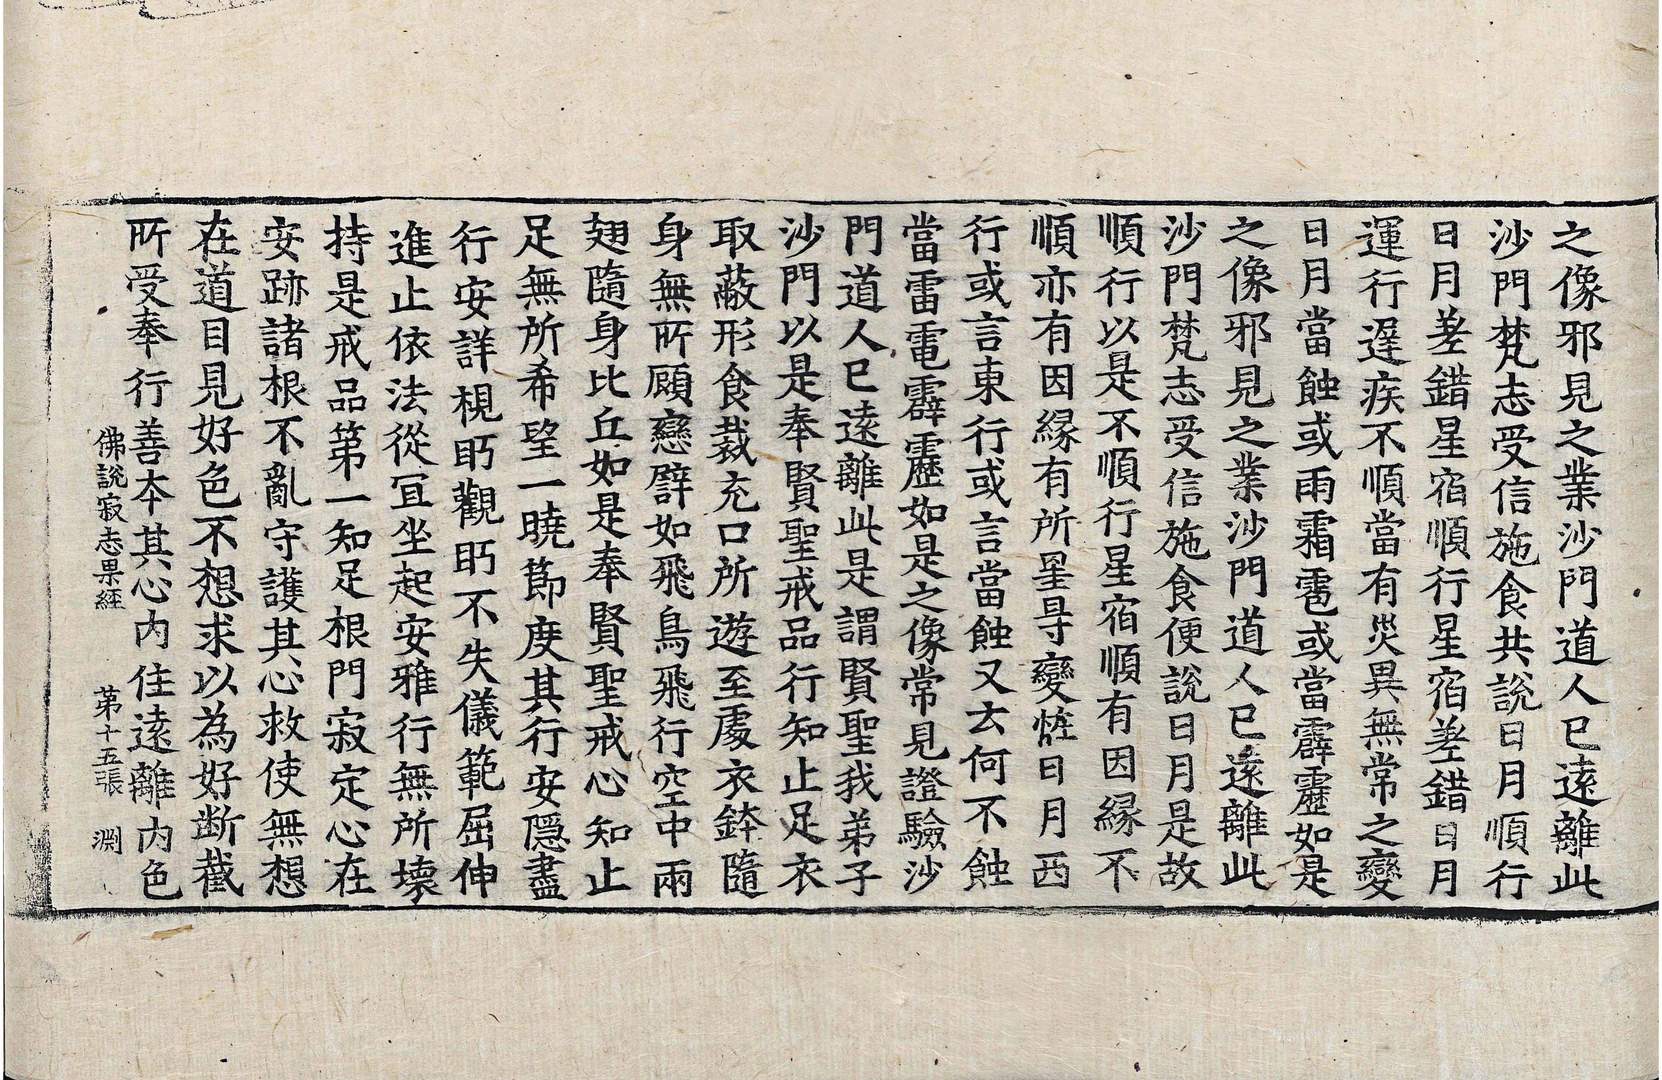 之像邪見之業沙門道人已遠離此
沙門梵志受信施食共說日月順行
日月差錯星宿順行星宿差錯日月
運行遲疾不順當有災異無常之變
日月當蝕或雨霜雹或當霹靂如是
之像邪見之業沙門道人已遠離此
沙門梵志受信施食便說日月是故
順行以是不順行星宿順有因緣不
順亦有因緣有所星㝵變恠日月西
行或言東行或言當蝕又云何不蝕
當雷電霹靂如是之像常見證驗沙
門道人已遠離此是謂賢聖我弟子
沙門以是奉賢聖戒品行知止足衣
取蔽形食裁充口所遊至處衣鉢隨
身無所顧戀譬如飛鳥飛行空中兩
翅隨身比丘如是奉賢聖戒心知止
足無所希望一曉節度其行安隱盡
行安詳視眄觀眄不失儀範屈伸
進止依法從冝坐起安雅行無所壞
持是戒品第一知足根門寂定心在
安跡諸根不亂守護其心救使無想
在道目見好色不想求以為好斷截
所受奉行善本其心內住遠離內色
佛說寂志果經 第十五張 淵